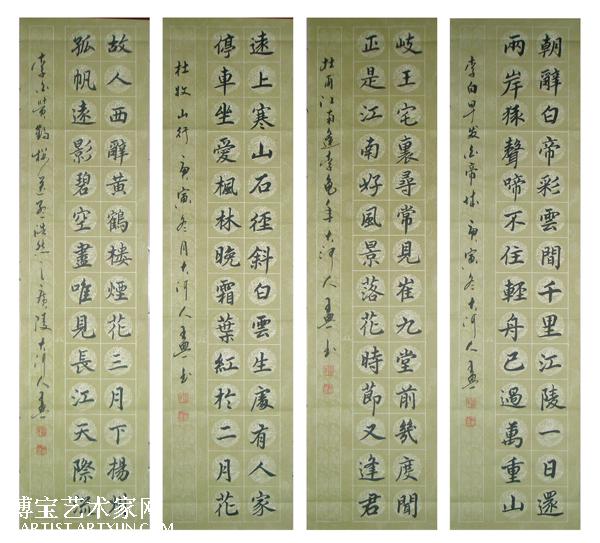 朝辭白帝彩雲間千里江陵一日還
兩岸猿聲啼不住輕舟已過萬重山
李白早发白帝城 庚寅冬大河人
岐王宅裏尋常見崔九堂前幾度聞
正是江南好風景落花時節又逢君
杜甫江南逢李龜年大河人
遠上寒山石徑斜白雲生處有人家
停車坐愛楓林晚霜葉紅於二月花
杜牧山行 庚寅冬月大河人
故人西辭黃鶴樓煙花三月下揚
孤帆遠影碧空盡唯見長江天際流
李白黃鶴樓送孟浩然之廣陵大河人
博宝艺术家网
ARTIST.ARTXUN.COM